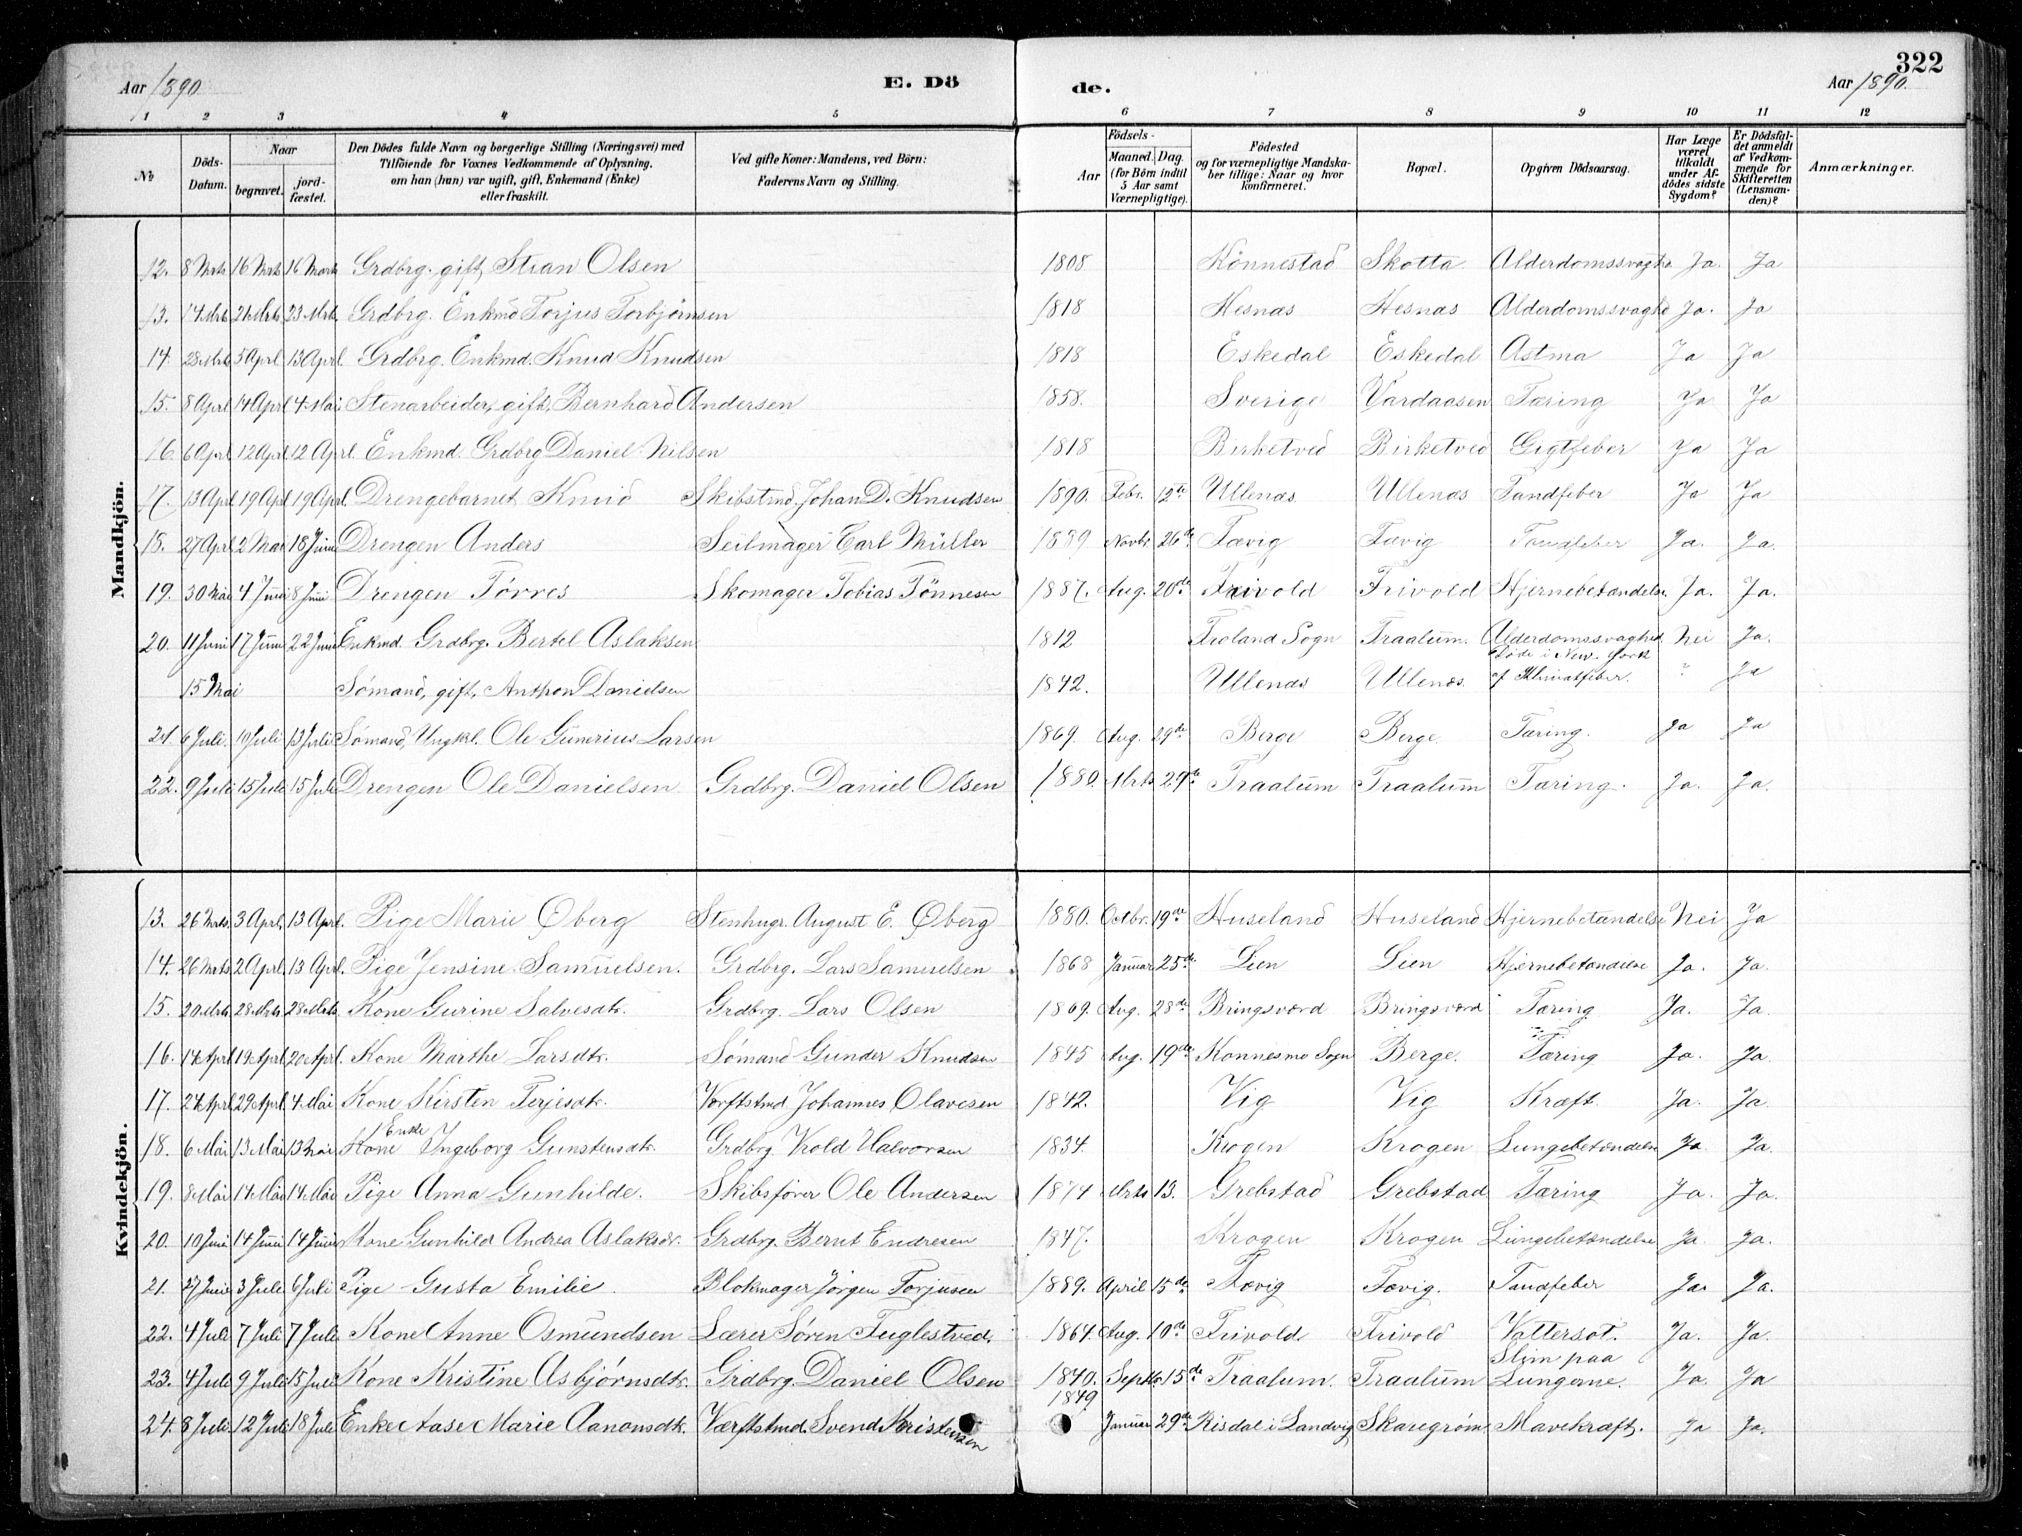 322
Aar 1890.
E. Dö
de.
Aar 1890.
1 2 3 4 5 6 7 8 9 10 11 12
№
Döds-Datum.
Naar
begravet.
jord-fæstet.
Den Dödes fulde Navn og borgerlige Stilling (Næringsvei) med
Tilföiende for Voxnes Vedkommende af Oplysning,
om han (hun) var ugift, gift, Enkemand (Enke)
eller fraskilt.
Ved gifte Koner: Mandens, ved Börn:
Faderens Navn og Stilling.
Födsels-
Aar
Maaned. Dag.
(for Börn indtil
5 Aar samt
Værnepligtige).
Födested
og for værnepligtige Mandska-
ber tillige: Naar og hvor
konfirmeret.
Bopæl.
Opgiven Dödsaarsag.
Har Læge
været
tilkaldt
under Af-
dödes sidste
Sygdom?
Er Dödsfal-
det anmeldt
af Vedkom-
mende for
Skifteretten
(Lensman-
den)?
Anmærkninger.
Mandkjön.
12. 8 Mrts 16 Mrts 16 Marts Grdbrg. gift, Stian Olsen 1808 Könnestad Skotta Alderdomssvaghe Ja. Ja
13. 14 Mrts 21 Mrts 23 Mrts Grdbrg. Enkmd Torjus Torbjørnsen 1818 Hesnæs Hesnæs Alderdomssvaghe Ja. Ja
14. 28 Mrts 5 Aprl 13 Aprl. Grdbrg. Enkmd. Knud Knudsen 1818 Eskedal Eskedal Astma Ja Ja
15. 8 Aprl 14 Aprl 4 Mai Stenarbeider, gift, Bernhard Andersen 1858. Sverige Vardaasen Tæring Ja Ja
16. 6 Aprl 12 Aprl 12 Aprl. Enkmd. Grdbrg Daniel Nilsen 1818 Birketved Birketved Gigtfeber Ja Ja
17. 13 Aprl 19 Aprl 19 Aprl. Drengebarnet Knud Skibstmd. Johan D. Knudsen 1890. Febr. 12te Ullenæs Ullenæs Tandfeber Ja Ja
18. 27 Aprl 2 Mai 18 Juni Drengen Anders Seilmager Carl Müller 1889 Novbr. 26de Fævig Fævig Tandfeber Ja. Ja.
19. 30 Mai 4 Juni 8 Juni Drengen Tørres Skomager Tobias Tönnesen 1887. Aug. 20de Frivold Frivold Hjernebetændelse Ja. Ja.
20. 11 Juni 17 Juni 22 Juni Enkmd. Grdbrg. Bertel Aslaksen 1812 Froland Sogn Traalum. Alderdomssvaghed Nei Ja.
15 Mai Sømand, gift, Anthon Danielsen 1842. Ullenæs Ullenæs. Døde i New York af Klimatfeber. ? Ja
21. 6 Juli. 10 Juli 13 Juli Sømand, Ungkrl. Ole Gunerius Larsen 1869. Aug. 29de Berge Berge. Tæring. Ja Ja
22. 9 Juli 15 Juli 15 Juli Drengen Ole Danielsen Grdbrg. Daniel Olsen 1880. Mrts 29de Traalum Traalum Tæring. Ja. Ja.
Kvindekjön.
13. 26 Mrts. 3 Aprl. 13 Aprl. Pige Marie Øberg Stenhugr. August E. Øberg 1880. Octbr. 19de Huseland Huseland Hjernebetændelse Nei Ja
14. 26 Mrts 2 Aprl. 13 Aprl. Pige Jensine Samuelsen. Grdbrg. Lars Samuelsen 1868 Januar 25de Lien Lien Hjernebetændelse Ja. Ja.
15. 20 Mrts 28 Mrts 28 Mrts. Kone Gurine Salvesdtr. Grdbrg. Lars Olsen 1869. Aug. 28de Bringsværd Bringsværd Tæring Ja. Ja.
16. 14 Aprl 19 Aprl 20 Aprl. Kone Marthe Larsdtr. Sømand Gunder Knudsen 1845 Aug. 19de Konnesmo Sogn Berge. Tæring Ja. Ja.
17. 24 Aprl 29 Aprl. 4 Mai Kone Kirsten Terjesdtr. Værftstmd. Johannes Olavesen 1842. Vig Vig Kræft. Ja. Ja.
18. 6 Mai 13 Mai 13 Mai Kone Enke Ingeborg Gunstensdtr. Grdbrg Vrold Halvorsen 1834. Krogen Krogen Lungebetændelse Ja Ja.
19. 8 Mai 14 Mai 14 Mai Pige Anna Gunhilde. Skibsfører Ole Andersen 1874 Mrts 13. Grebstad Grebstad Tæring Ja. Ja.
20. 10 Juni 14 Juni 14 Juni Kone Gunhild Andrea Aslaksdtr. Grdbrg. Bernt Endresen 1847. Krogen Krogen Lungebetændelse Ja. Ja.
21. 27 Juni 3 Juli 6 Juli Pige Gusta Emilie. Blokmager Jörgen Torjusen 1889. April 15de Fævig Fævig. Tandfeber Ja. Ja.
22. 4 Juli 7 Juli 7 Juli Kone Anne Osmundsen Lærer Sören Fuglestved. 1864. Aug. 10de Frivold Frivold Vattersot. Ja. Ja.
23. 4 Juli 9 Juli 15 Juli Kone Kristine Asbjørnsdtr. Grdbrg. Daniel Olsen 1840. Septbr. 15de Traalum. Traalum Slim paa Lungerne. Ja. Ja
24. 8 Juli. 12 Juli 18 Juli Enke Aase Marie Aanonsdtr. Værftstmd. Svend Kristensen 1849 Januar 29de Risdal i Landvig Skaregrøm. Mavekræft. Ja Ja.